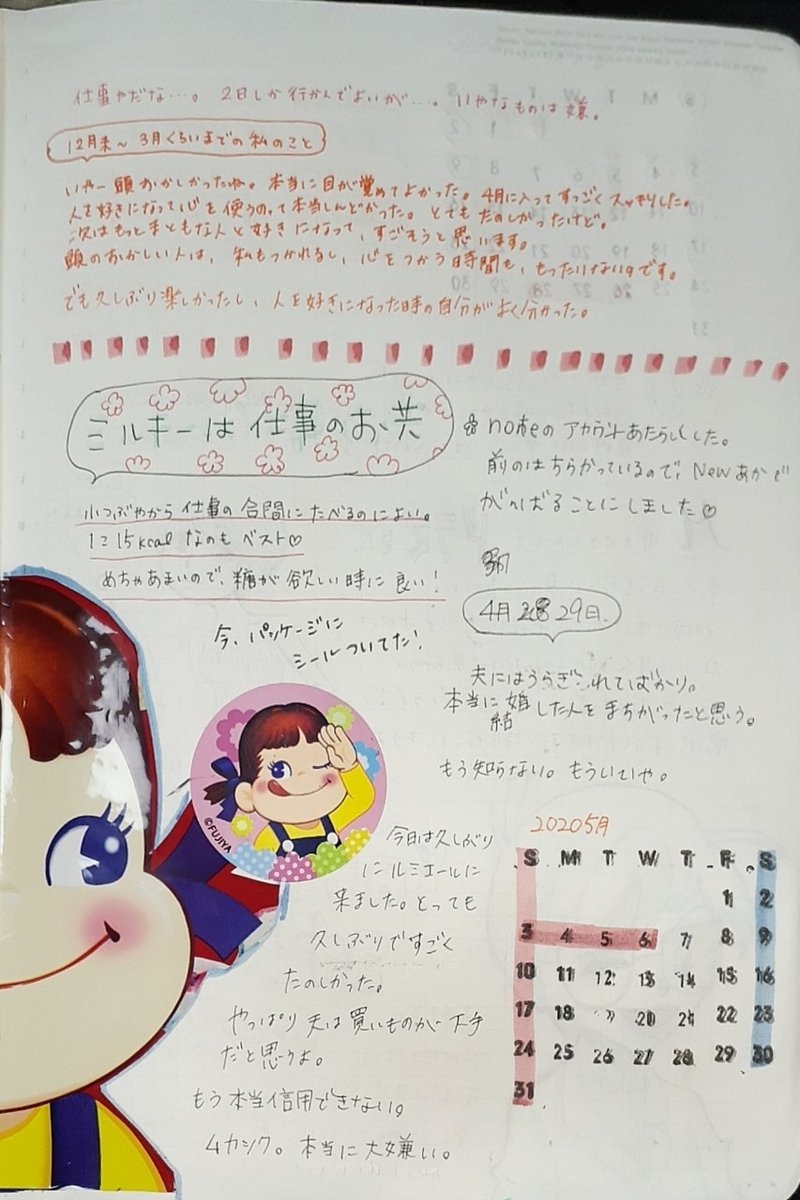 仕事やだな…。2日しか行かんでよいが…。いやなものは嫌。
12月末~3月くらいまでの私のこと
いやー頭おかしかったね。本当に目が覚めてよかった。4月に入ってすっごくスッキリした。
人を好きになって心を使うのって本当しんどかった。とてもたのしかったけど。
次はもっとまともな人と好きになって、すごそうと思います。
頭のおかしい人は、私もつかれるし、心をつかう時間も、もったいないのです。
でも久しぶり楽しかったし、人を好きになった時の自分がよく分かった。
ミルキーは仕事のお共
小つぶやから仕事の合間にたべるのによい。
1こ15kcalなのもベスト♡
めちゃあまいので、糖が欲しい時に良い!
今、パッケージに
シールついてた!
noteのアカウントあたらしくした。
前のはちらかっているので、Newあかで
がんばることにしました♡
4月 29日.
夫にはうらぎられてばかり。
本当に結婚した人をまちがったと思う。
もう知らない。もういいや。
©FUJIYA
今日は久しぶり
にルミエールに
来ました。とっても
久しぶりですごく
たのしかった。
やっぱり夫は買いものが下手
だと思うよ。
もう本当信用できない。
ムカシク。本当に大嫌い。
2020 5月
S M T W T F S
1 2
3 4 5 6 7 8 9
10 11 12 13 14 15 16
17 18 19 20 21 22 23
24 25 26 27 28 29 30
31